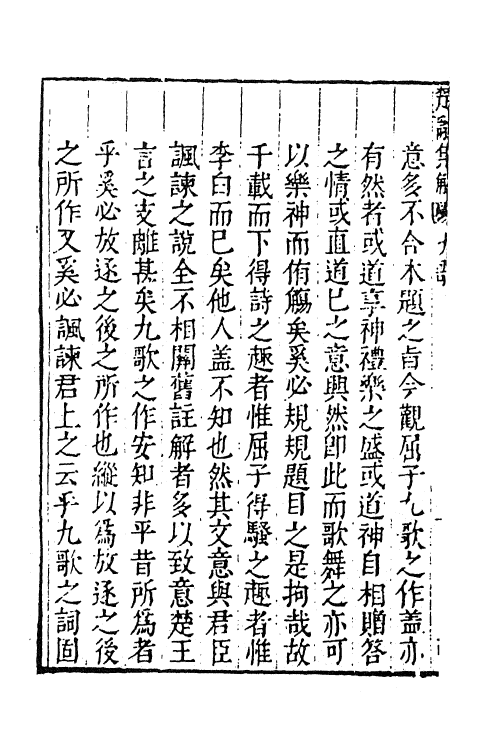 楚辭集解　九歌
意多不合本題之旨今觀屈子九歌之作盖亦
有然者或道享神禮樂之盛或道神自相贈答
之情或直道已之意興然卽此而歌舞之亦可
以樂神而侑觴矣奚必規規題目之是拘哉故
千載而下得詩之趣者惟屈子得騷之趣者惟
李白而已矣他人盖不知也然其文意與君臣
諷諫之說全不相關舊註解者多以致意楚王
言之支離甚矣九歌之作安知非平昔所爲者
乎奚必放逐之後之所作也縱以爲放逐之後
之所作又奚必諷諫君上之云乎九歌之詞固